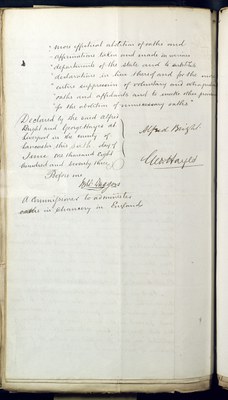 "more effectual abolition of oaths and
"affirmations taken and made in various
"departments of the state and to substitute
"declarations in lieu thereof and for the more
"entire suppression of voluntary and extra judicial
"oaths and affidavits and to make other provisions
"for the abolition of unnecessary oaths"
Declared by the said Alfred
Bright and George Hayes at
Liverpool in the county of
Lancaster this sixth day of
June one thousand eight
hundred and seventy three
Alfred Bright
Geo Hayes
Before me
A Commissioner to administer
oaths in Chancery in England